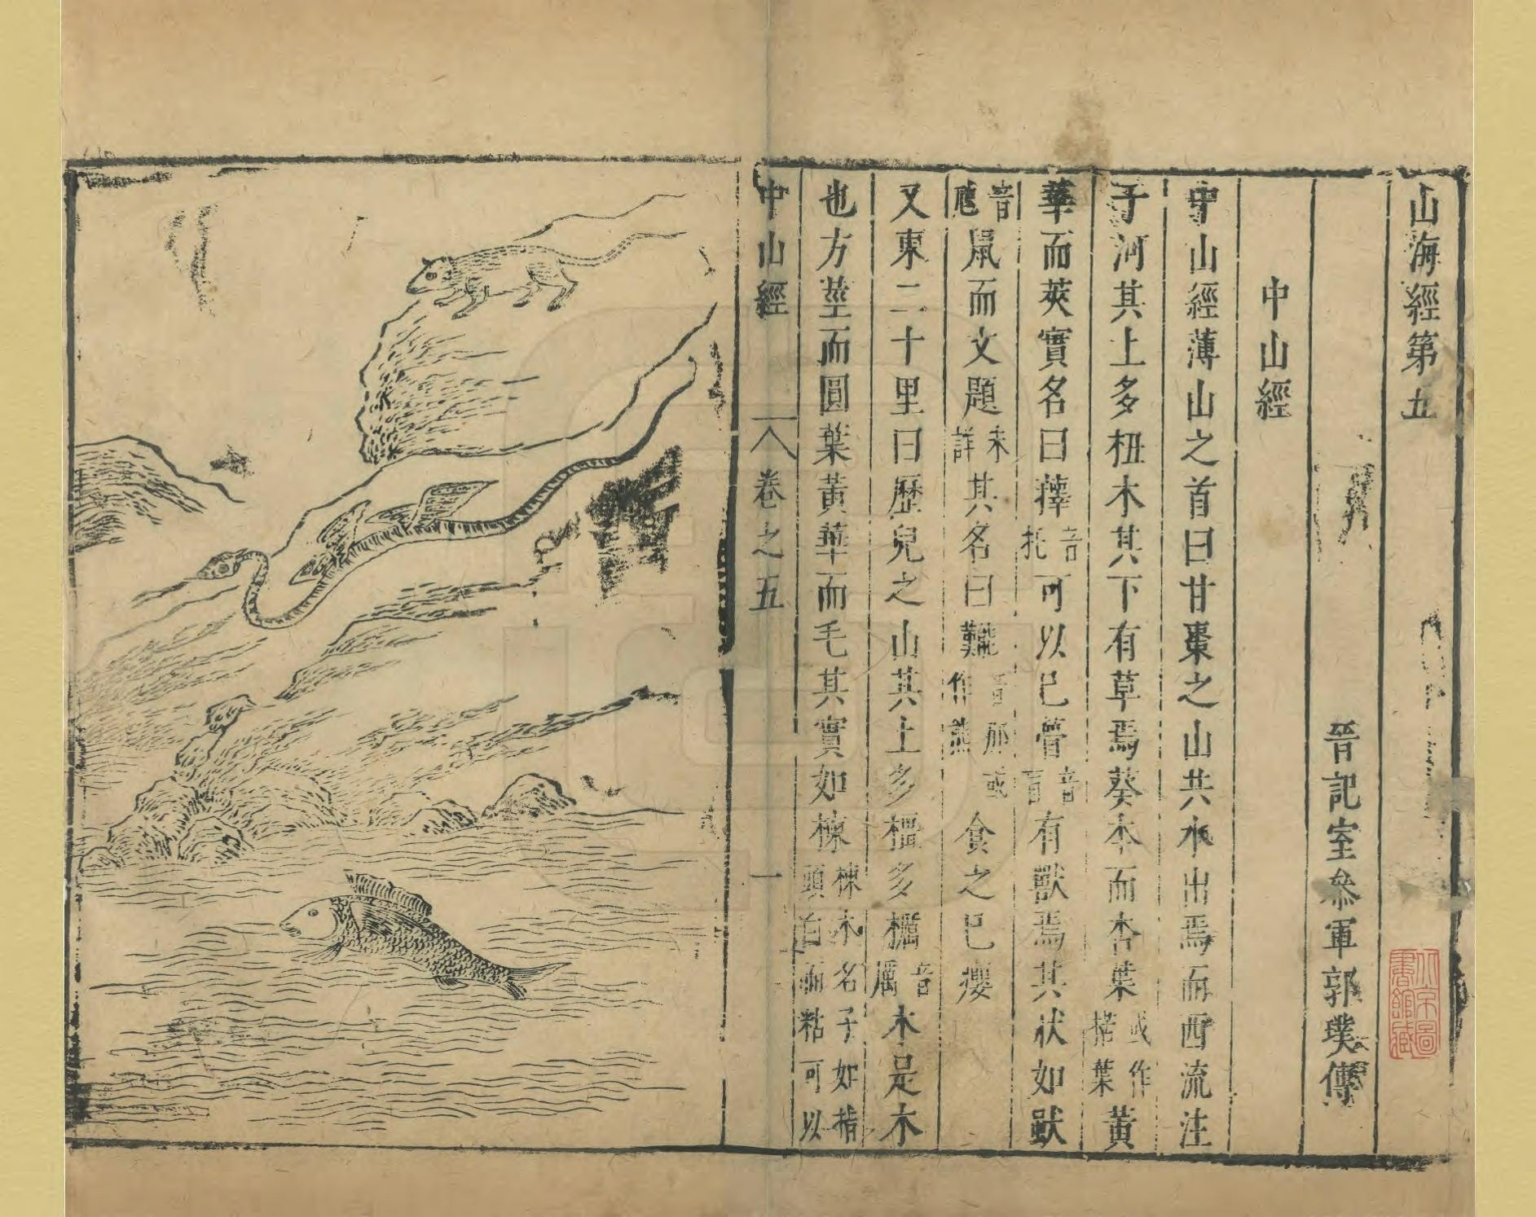 山海經第五
晉記室叅軍郭璞傳
中山經
中山經薄山之首曰甘棗之山共水出焉而西流注
于河其上多杻木其下有草焉葵本而杏葉或作楛葉黃
華而莢實名曰蘀音托可以已瞢音盲有獸焉其狀如䶅
音虺鼠而文題未詳其名曰㔮音那或作熊食之已癭
又東二十里曰歷兒之山其上多橿多櫔音厲木是木
也方莖而圓葉黃華而毛其實如楝楝木名子如指頭白而粘可以
中山經 卷之五 一